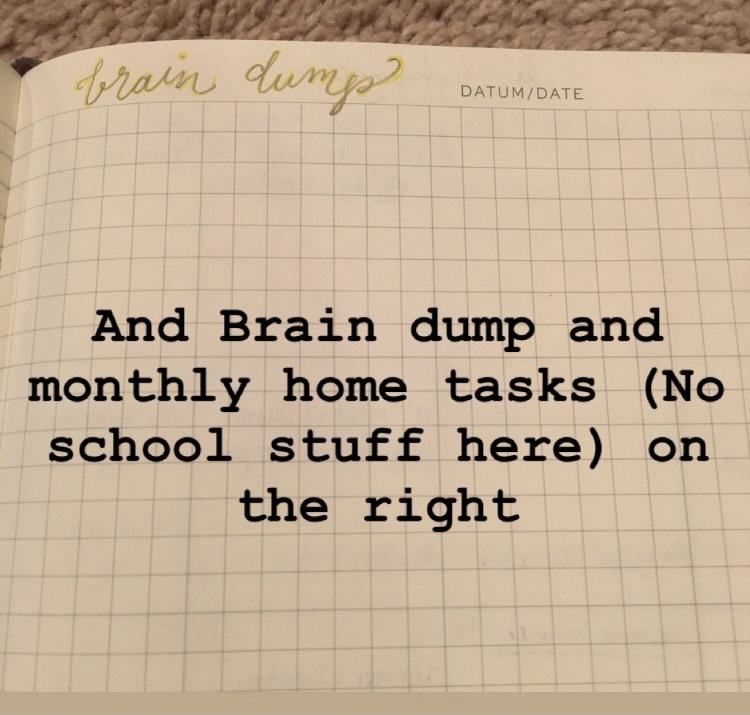 brain dump
DATUM/DATE
And Brain dump and
monthly home tasks (No
school stuff here) on
the right